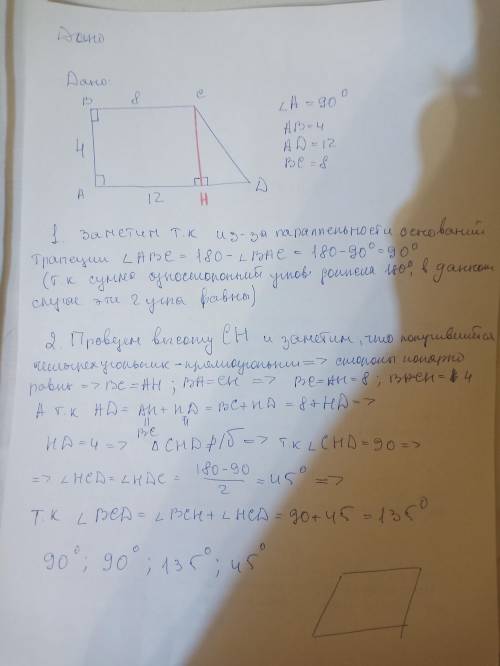 Дано
Дано:
B 8 C
4
A 12 H D
∠A = 90°
AB = 4
AD = 12
BC = 8
1. Заметим т.к из-за параллельности оснований
трапеции ∠ABC = 180 - ∠BAC = 180 - 90° = 90°
(т.к сумма односторонний углов равняла 180°, в данном
случае эти 2 угла равны)
2. Проведем высоту CH и заметим, что получившийся
четырехугольник - прямоугольник => стороны попарно
равны => BC = AH ; BA = CH => BC = AH = 8 ; BA = CH = 4
А т.к AD = AH + HD = BC + HD = 8 + HD =>
BC
HD = 4 => △CHD р/б => т.к ∠CHD = 90 =>
=> ∠HCD = ∠HDC = 180 - 90 / 2 = 45° =>
т.к ∠BCD = ∠BCH + ∠HCD = 90 + 45 = 135°
90° ; 90° ; 135° ; 45°